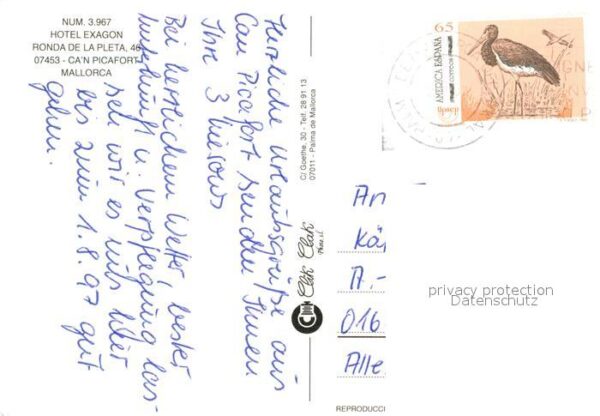 NUM. 3.967
HOTEL EXAGON
RONDA DE LA PLETA, 46
07453 - CA'N PICAFORT
MALLORCA
Herzliche Urlaubsgrüße aus
Can Picafort senden Ihnen
Ihre 3
Bei herrlichem Wetter, bester
u. Verpflegung las-
sen wir es uns hier
bis zum 1.8.97 gut
gehen.
C/ Goethe, 30 - Telf. 28 91 13
07011 - Palma de Mallorca
Clik Clak
AMERICA ESPAÑA
65
correos
An
A.-
016
Alle
privacy protection
Datenschutz
REPRODUCCI